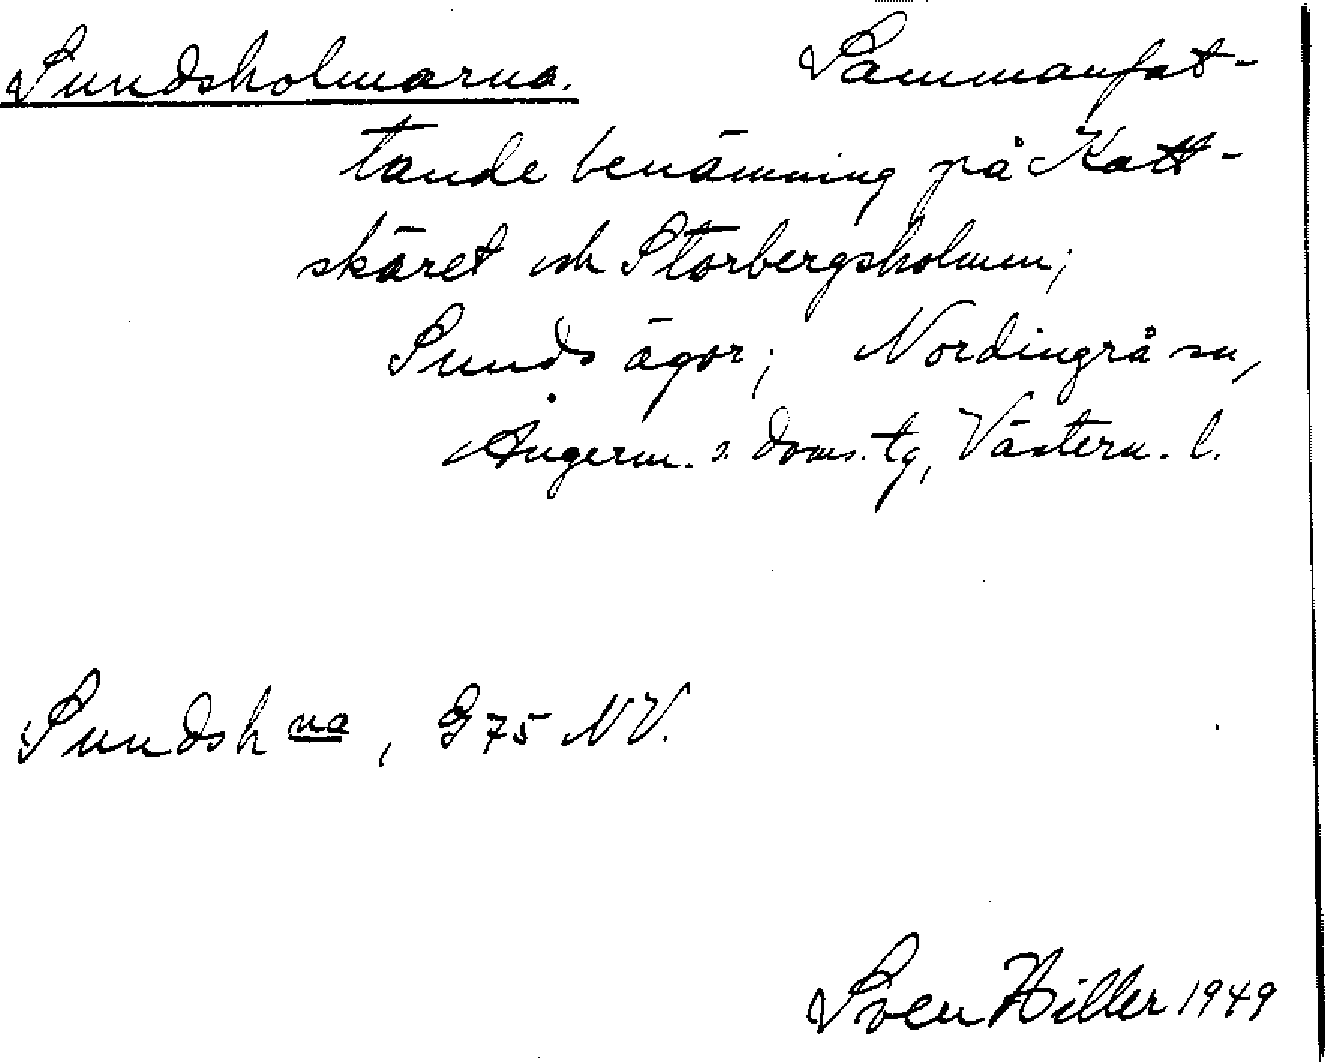 Sundsholmarna. Sammanfat-
tande benämning på Katt-
skäret och Storbergsholmen;
Sunds ägor; Nordingrå sn,
Ångerm. s. doms. tg, Västern. l.
Sundsh na, G75 NV.
Sven Hiller 1949